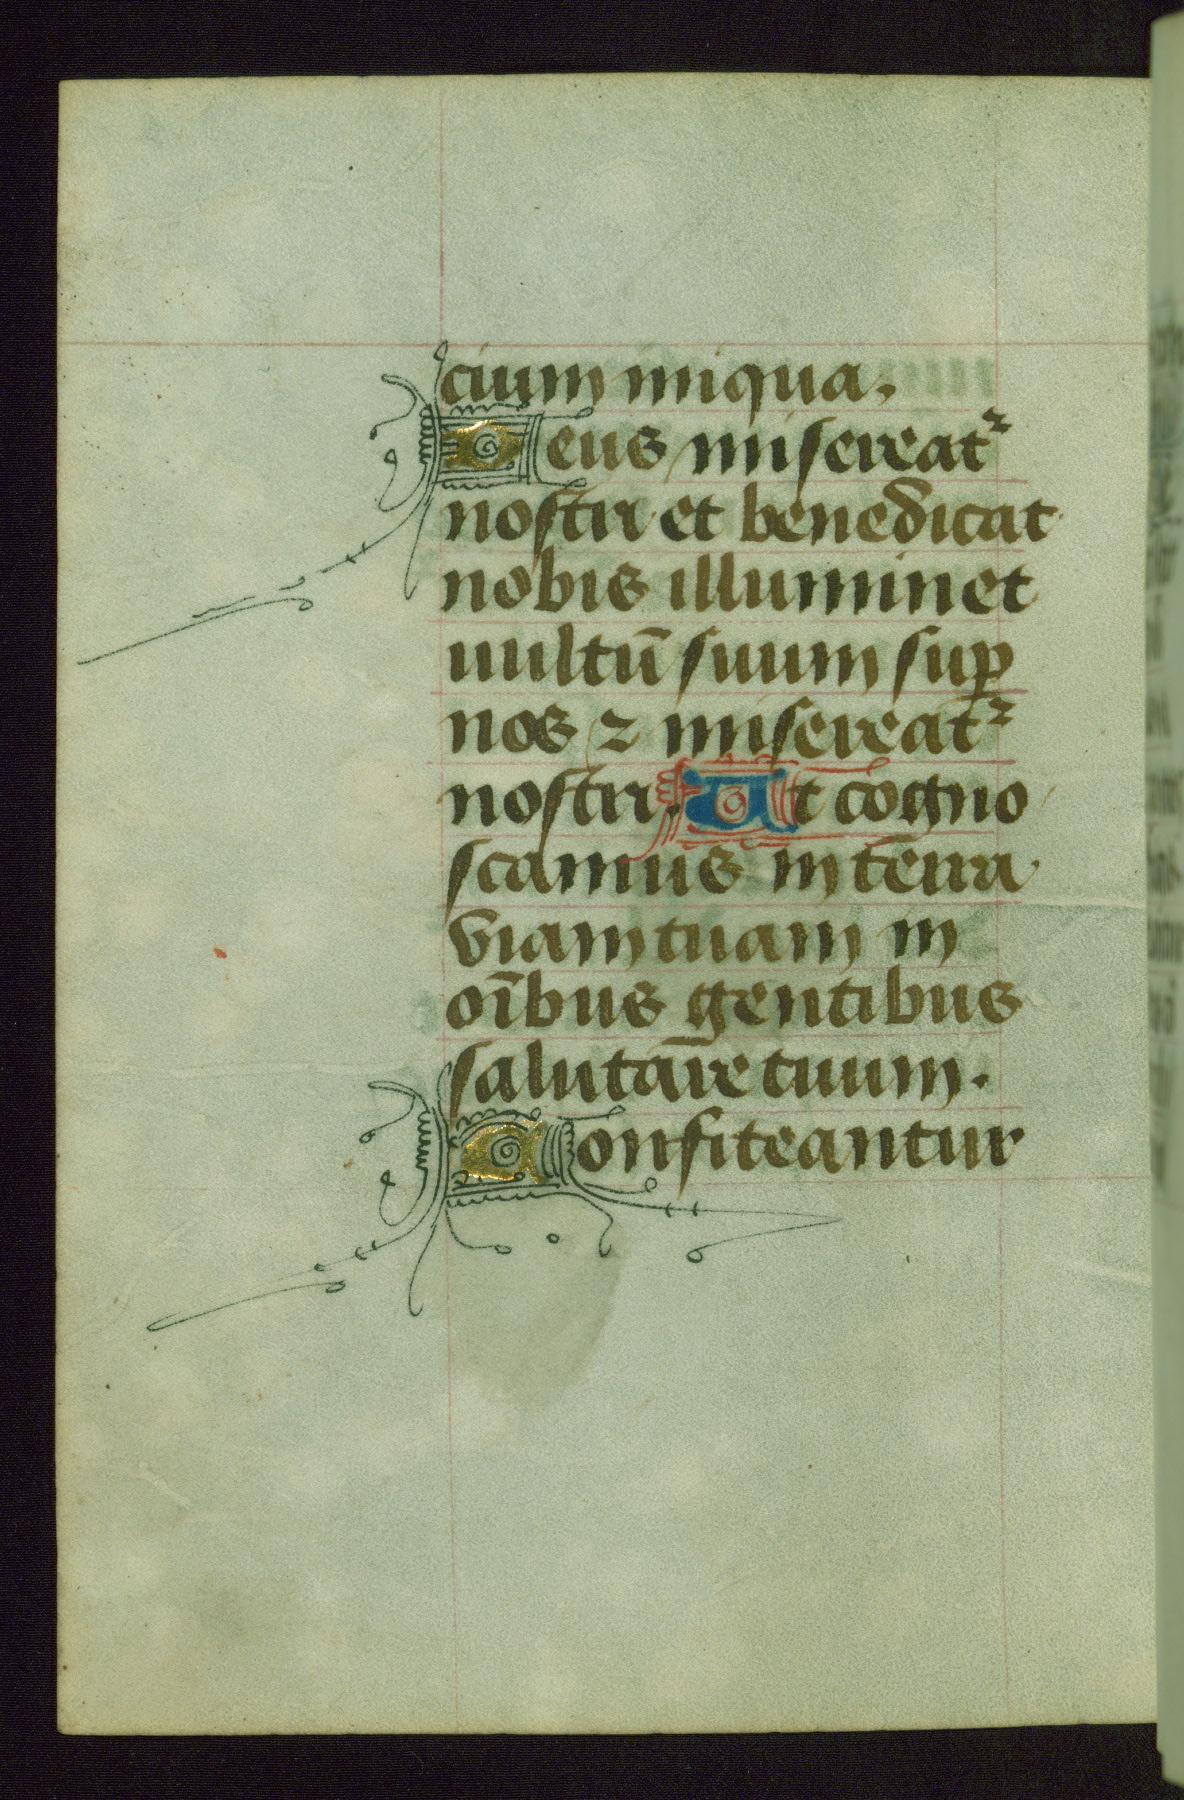 cium iniqua.
Deus misereat᷑
nostri et benedicat
nobis illuminet
uultū suum suꝑ
nos ⁊ misereat᷑
nostri. Ut cogno
scamus in terra
viam tuam in
oībus gentibus
salutare tuum.
Confiteantur